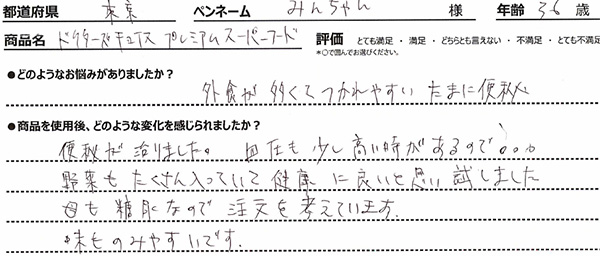 都道府県 東京 ペンネーム みんちゃん 様 年齢 36 歳
商品名 ドクターズチョイス プレミアムスーパーフード 評価 とても満足 ・ 満足 ・ どちらとも言えない ・ 不満足 ・ とても不満足
*○で囲んでお選びください。
●どのようなお悩みがありましたか?
外食が多くてつかれやすい たまに便秘
●商品を使用後、どのような変化を感じられましたか?
便秘が治りました。 血圧も少し高い時があるので。。。
野菜もたくさん入っていて健康に良いと思い試しました
母も糖尿なので注文を考えています。
味ものみやすいです。